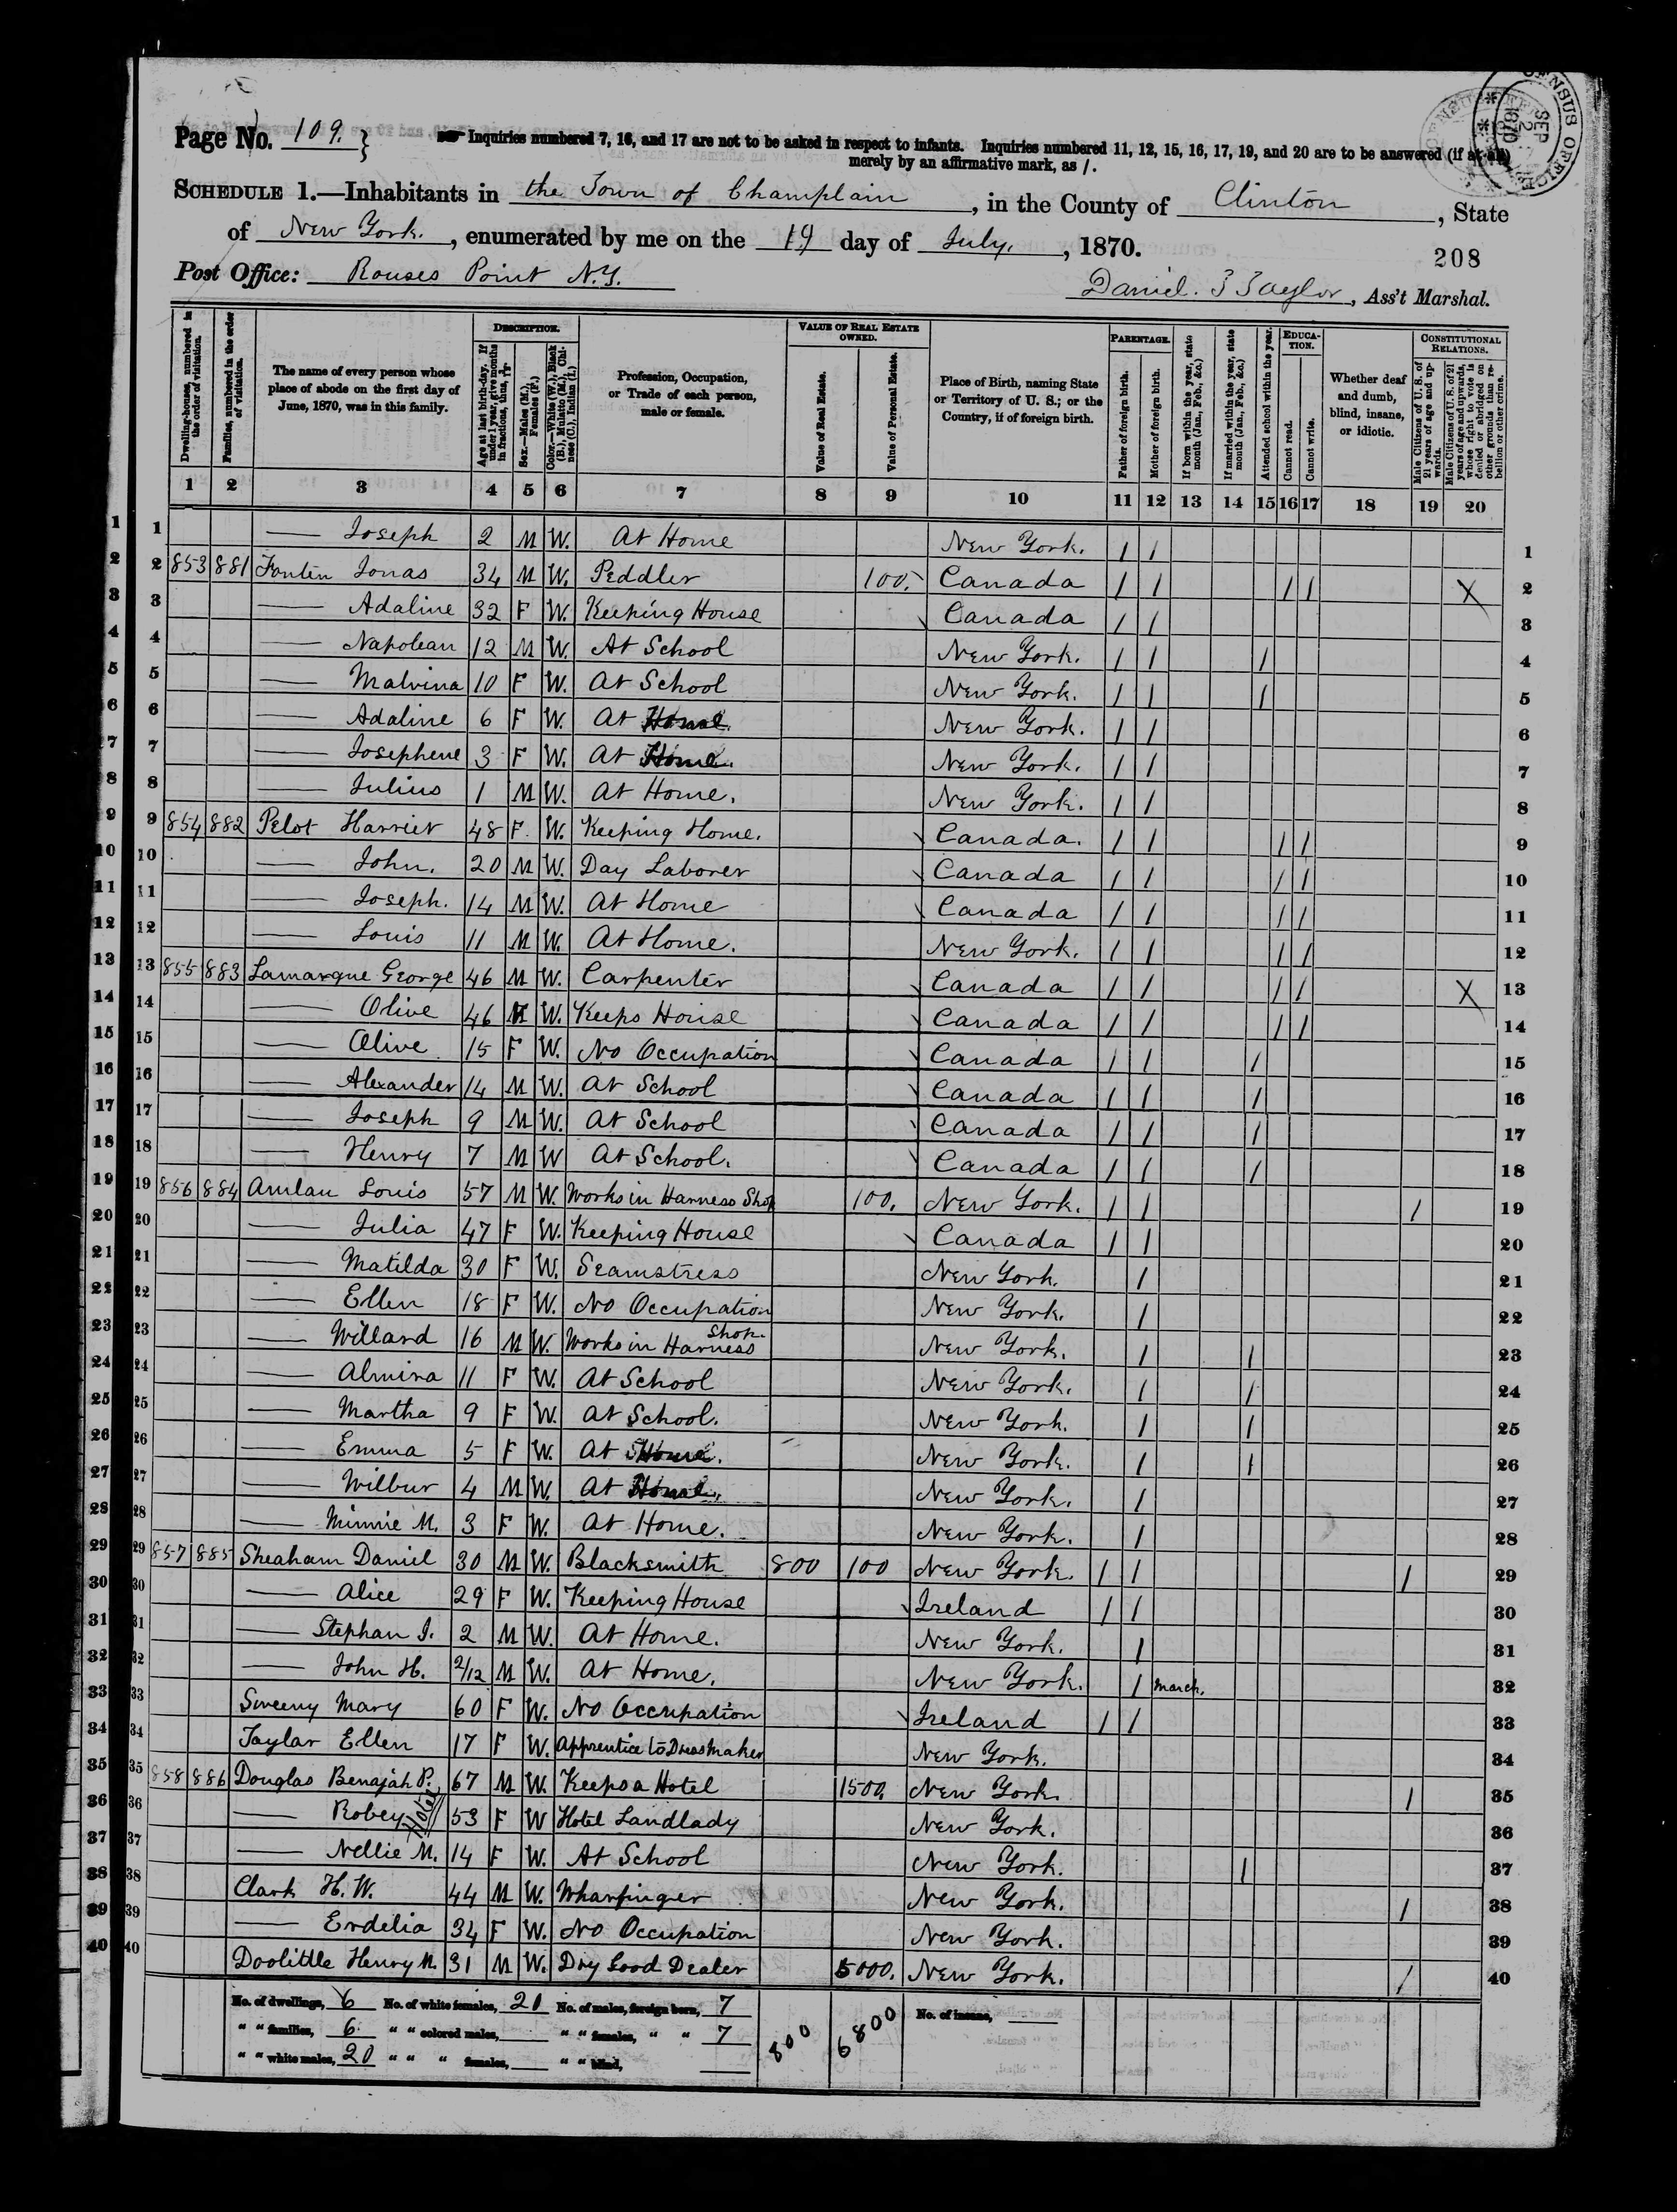 Page No. 109. } Inquiries numbered 7, 16, and 17 are not to be asked in respect to infants. Inquiries numbered 11, 12, 15, 16, 17, 19, and 20 are to be answered (if at all)
merely by an affirmative mark, as /.
SCHEDULE 1.—Inhabitants in the Town of Champlain, in the County of Clinton, State
of New York., enumerated by me on the 19 day of July, 1870.
208
Post Office: Rouses Point N.Y.
Daniel. T Taylor, Ass't Marshal.
CENSUS OFFICE SEP 2 1870
Dwelling-houses, numbered in the order of visitation.
Families, numbered in the order of visitation.
The name of every person whose place of abode on the first day of June, 1870, was in this family.
DESCRIPTION.
Age at last birth-day. If under 1 year, give months in fractions, thus, 3/12
Sex.—Males (M.), Females (F.)
Color.—White (W.), Black (B.), Mulatto (M.), Chinese (C.), Indian (I.)
Profession, Occupation, or Trade of each person, male or female.
VALUE OF REAL ESTATE OWNED.
Value of Real Estate.
Value of Personal Estate.
Place of Birth, naming State or Territory of U. S.; or the Country, if of foreign birth.
PARENTAGE.
Father of foreign birth.
Mother of foreign birth.
If born within the year, state month (Jan., Feb., &c.)
If married within the year, state month (Jan., Feb., &c.)
Attended school within the year.
EDUCATION.
Cannot read.
Cannot write.
Whether deaf and dumb, blind, insane, or idiotic.
CONSTITUTIONAL RELATIONS.
Male Citizens of U. S. of 21 years of age and upwards.
Male Citizens of U. S. of 21 years of age and upwards, whose right to vote is denied or abridged on other grounds than rebellion or other crime.
1 2 3 4 5 6 7 8 9 10 11 12 13 14 15 16 17 18 19 20
1 1 —— Joseph 2 M W. At Home New York. / / 1
2 2 853 881 Fonten Jonas 34 M W. Peddler 100. Canada / / / / X 2
3 3 —— Adaline 32 F W. Keeping House Canada / / 3
4 4 —— Napolean 12 M W. At School New York. / / / 4
5 5 —— Malvina 10 F W. At School New York. / / / 5
6 6 —— Adaline 6 F W. At Home New York. / / 6
7 7 —— Josephene 3 F W. At Home. New York. / / 7
8 8 —— Julius 1 M W. At Home. New York. / / 8
9 9 854 882 Pelot Harriet 48 F. W. Keeping Home. Canada. / / / / 9
10 10 —— John. 20 M W. Day Laborer Canada / / / / 10
11 11 —— Joseph. 14 M W. At Home Canada / / / / 11
12 12 —— Louis 11 M W. At Home. New York. / / / / 12
13 13 855 883 Lamarque George 46 M W. Carpenter Canada / / / / X 13
14 14 —— Olive 46 F W. Keeps House Canada / / / / 14
15 15 —— Olive 15 F W. No Occupation Canada / / / 15
16 16 —— Alexander 14 M W. At School Canada / / / 16
17 17 —— Joseph 9 M W. At School Canada / / / 17
18 18 —— Henry 7 M W At School. Canada / / / 18
19 19 856 884 Louis 57 M W. Works in Harness Shop 100. New York. / / / 19
20 20 —— Julia 47 F W. Keeping House Canada / / 20
21 21 —— Matilda 30 F W. Seamstress New York. / 21
22 22 —— Ellen 18 F W. No Occupation New York. / 22
23 23 —— Willard 16 M W. Works in Harness Shop. New York. / / 23
24 24 —— Almira 11 F W. At School New York. / / 24
25 25 —— Martha 9 F W. At School. New York. / / 25
26 26 —— Emma 5 F W. At Home. New York. / / 26
27 27 —— Wilbur 4 M W. At Home. New York. / 27
28 28 —— Minnie M. 3 F W. At Home. New York. / 28
29 29 857 885 Sheaham Daniel 30 M W. Blacksmith 800 100 New York. / / / 29
30 30 —— Alice 29 F W. Keeping House Ireland / / 30
31 31 —— Stephan J. 2 M W. At Home. New York. / 31
32 32 —— John H. 2/12 M W. At Home. New York. / March. 32
33 33 Sweeny Mary 60 F W. No Occupation Ireland / / 33
34 34 Taylor Ellen 17 F W. Apprentice to Dressmaker New York. 34
35 35 858 886 Douglas Benajah P. 67 M W. Keeps a Hotel 1500. New York. / 35
36 36 —— Robey Hotel 53 F W Hotel Landlady New York. 36
37 37 —— Nellie M. 14 F W. At School New York. / 37
38 38 Clark H. W. 44 M W. Wharfinger New York. / 38
39 39 —— Erdelia 34 F W. No Occupation New York. 39
40 40 Doolittle Henry M. 31 M W. Dry Good Dealer 5000. New York. / 40
No. of dwellings, 6 No. of white females, 20 No. of males, foreign born, 7 800 6800 No. of insane,
" " families, 6. " " colored males, " " females, " " 7
" " white males, 20 " " " females, " " blind,